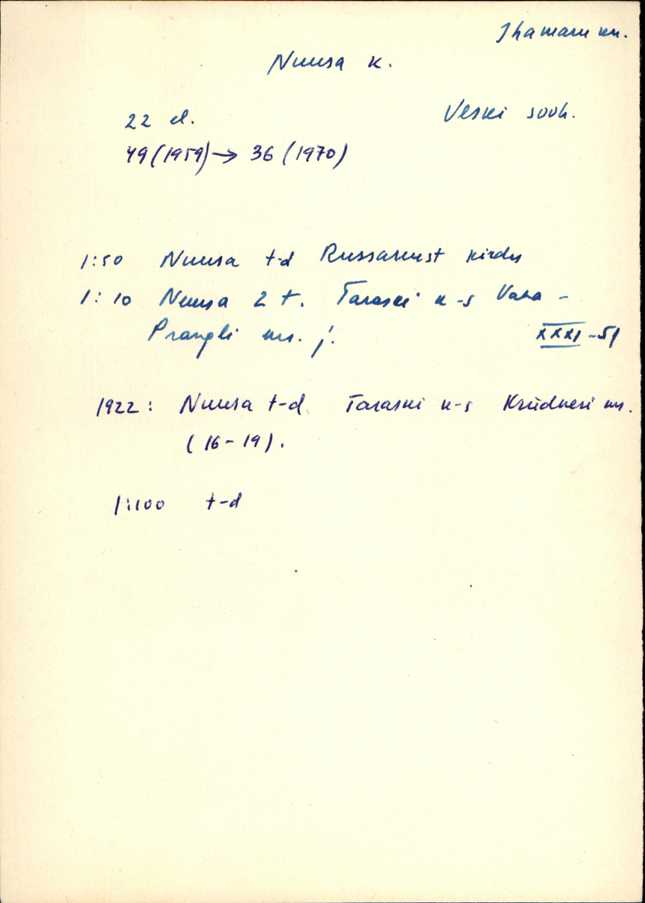 Ihamaru kn.
Nuusa k.
22 el. Veski sovh.
49 (1959) → 36 (1970)
1:50 Nuusa t-d Russarust kirdes
1:10 Nuusa 2 t. Taraski k-s Vana-
Prangli ms. j. XXXI-51
1922: Nuusa t-d. Taraski k-s Krüdneri ms.
(16-19).
1:100 t-d